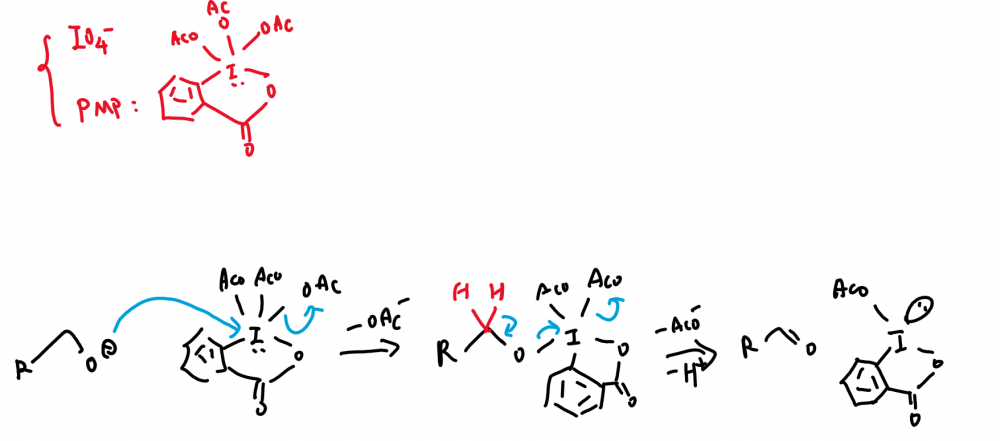 IO4⁻
AC
O
ACO OAC
I
O
PMP :
O
ACO ACO OAC
I
O
O
R O⊖
-OAC⁻
H H
ACO ACO
R O I O
O
-ACO⁻
-H⁺
R O
ACO
I
O
O